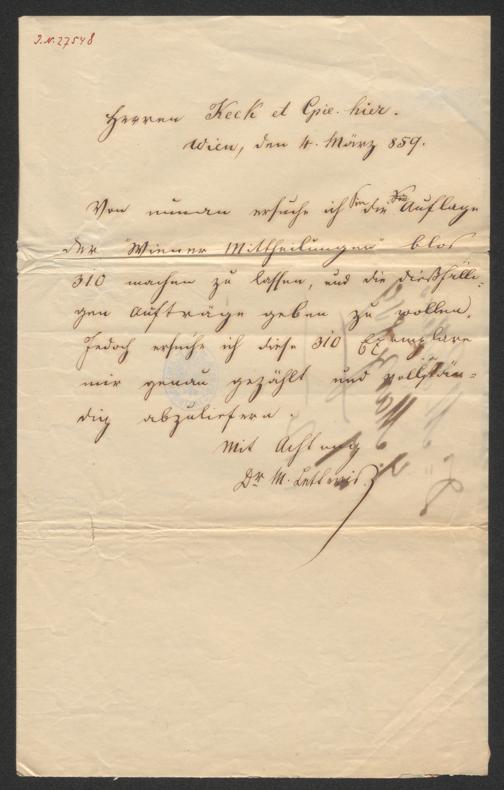 I.N. 27548
Herren Keck et Cpie. hier.
Wien, den 4. März 859.
Von nunan ersuche ich Sie die Auflage
der "Wiener Mittheilungen" blos
310 machen zu lassen, und die dießfälli-
gen Aufträge geben zu wollen.
Jedoch ersuche ich diese 310 Exemplare
mir genau gezählt und vollstän=
dig abzuliefern.
Mit Achtung
Dr M. Letteris